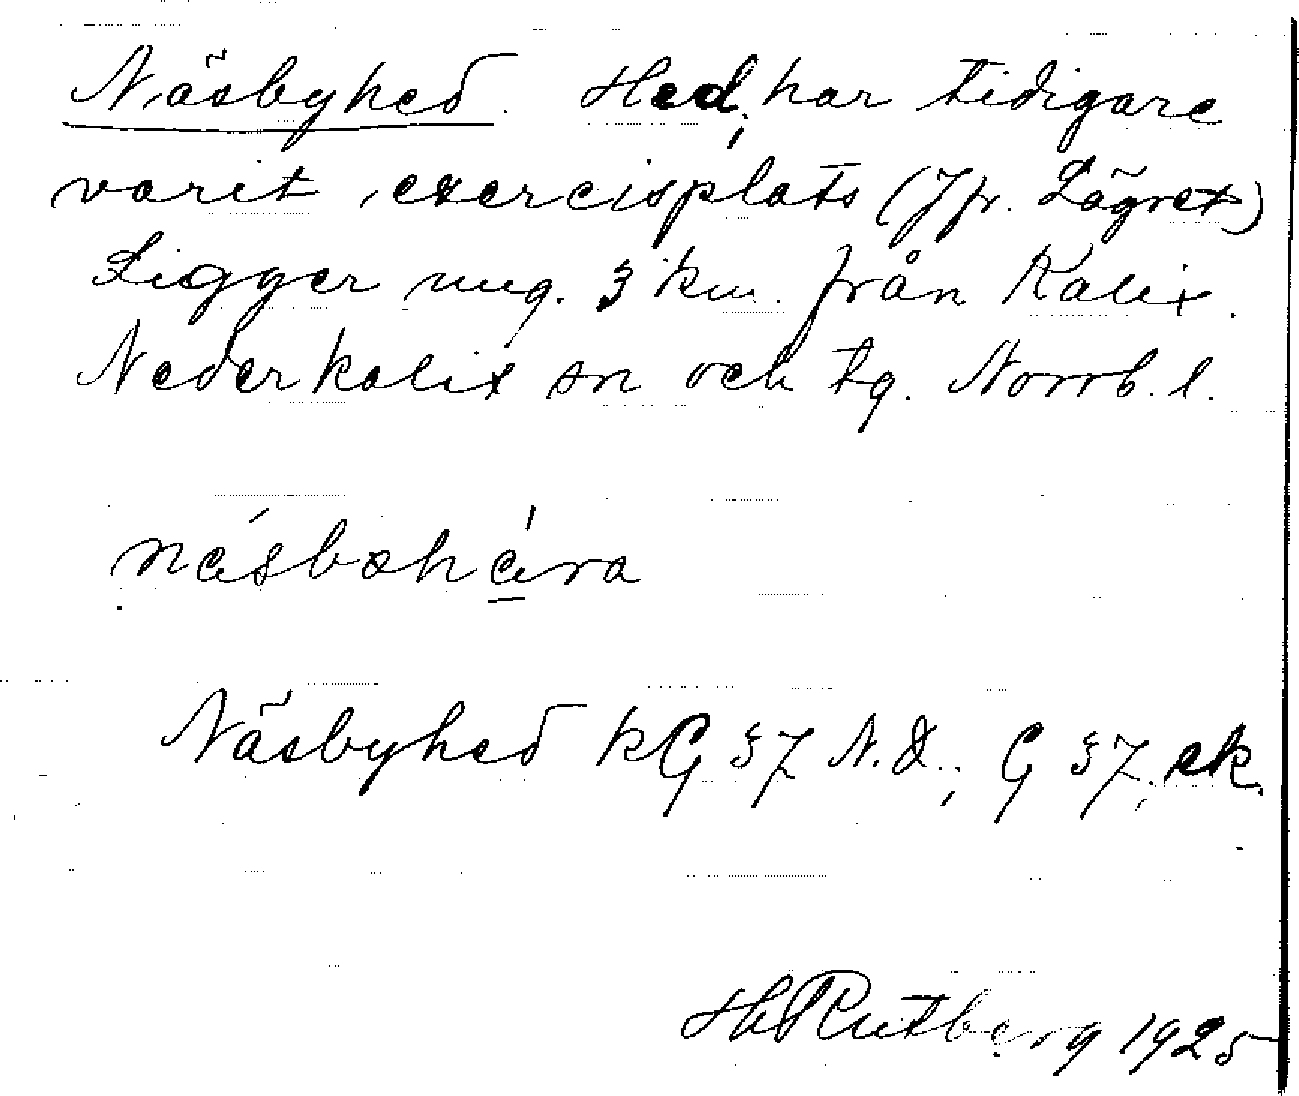 Näsbyhed. Hed, har tidigare
varit exercisplats (Jfr. Lägret)
Ligger ung. 3 km. från Kalix.
Nederkalix sn och tg. Norrb. l.
Näsbyhed kG 37 N.D.; G 37, ek.
H Rutberg 1925